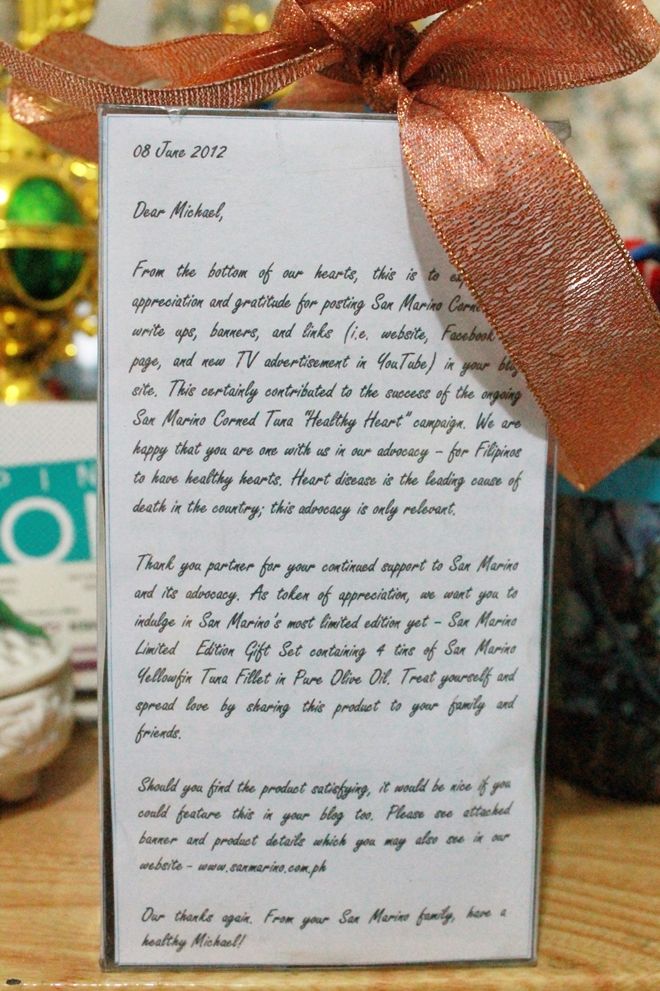 08 June 2012
Dear Michael,
From the bottom of our hearts, this is to
appreciation and gratitude for posting San Marino
write ups, banners, and links (i.e. website, Facebook
page, and new TV advertisement in YouTube) in your blog
site. This certainly contributed to the success of the ongoing
San Marino Corned Tuna "Healthy Heart" campaign. We are
happy that you are one with us in our advocacy – for Filipinos
to have healthy hearts. Heart disease is the leading cause of
death in the country; this advocacy is only relevant.
Thank you partner for your continued support to San Marino
and its advocacy. As token of appreciation, we want you to
indulge in San Marino's most limited edition yet – San Marino
Limited Edition Gift Set containing 4 tins of San Marino
Yellowfin Tuna Fillet in Pure Olive Oil. Treat yourself and
spread love by sharing this product to your family and
friends.
Should you find the product satisfying, it would be nice if you
could feature this in your blog too. Please see attached
banner and product details which you may also see in our
website - www.sanmarino.com.ph
Our thanks again. From your San Marino family, have a
healthy Michael!